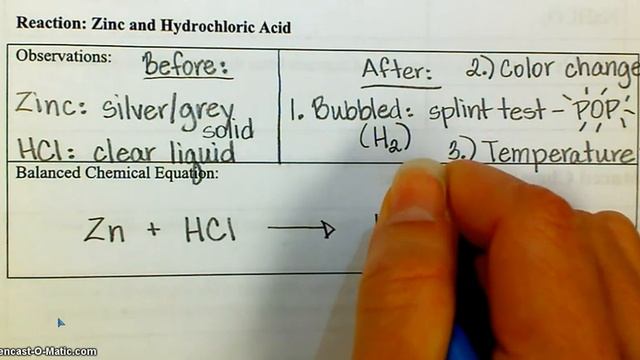 Reaction: Zinc and Hydrochloric Acid
Observations: Before:
Zinc: silver/grey solid
HCl: clear liquid
After: 2.) Color change
1. Bubbled: splint test - POP
(H2)
3.) Temperature
Balanced Chemical Equation:
Zn + HCl →
encast-O-Matic.com